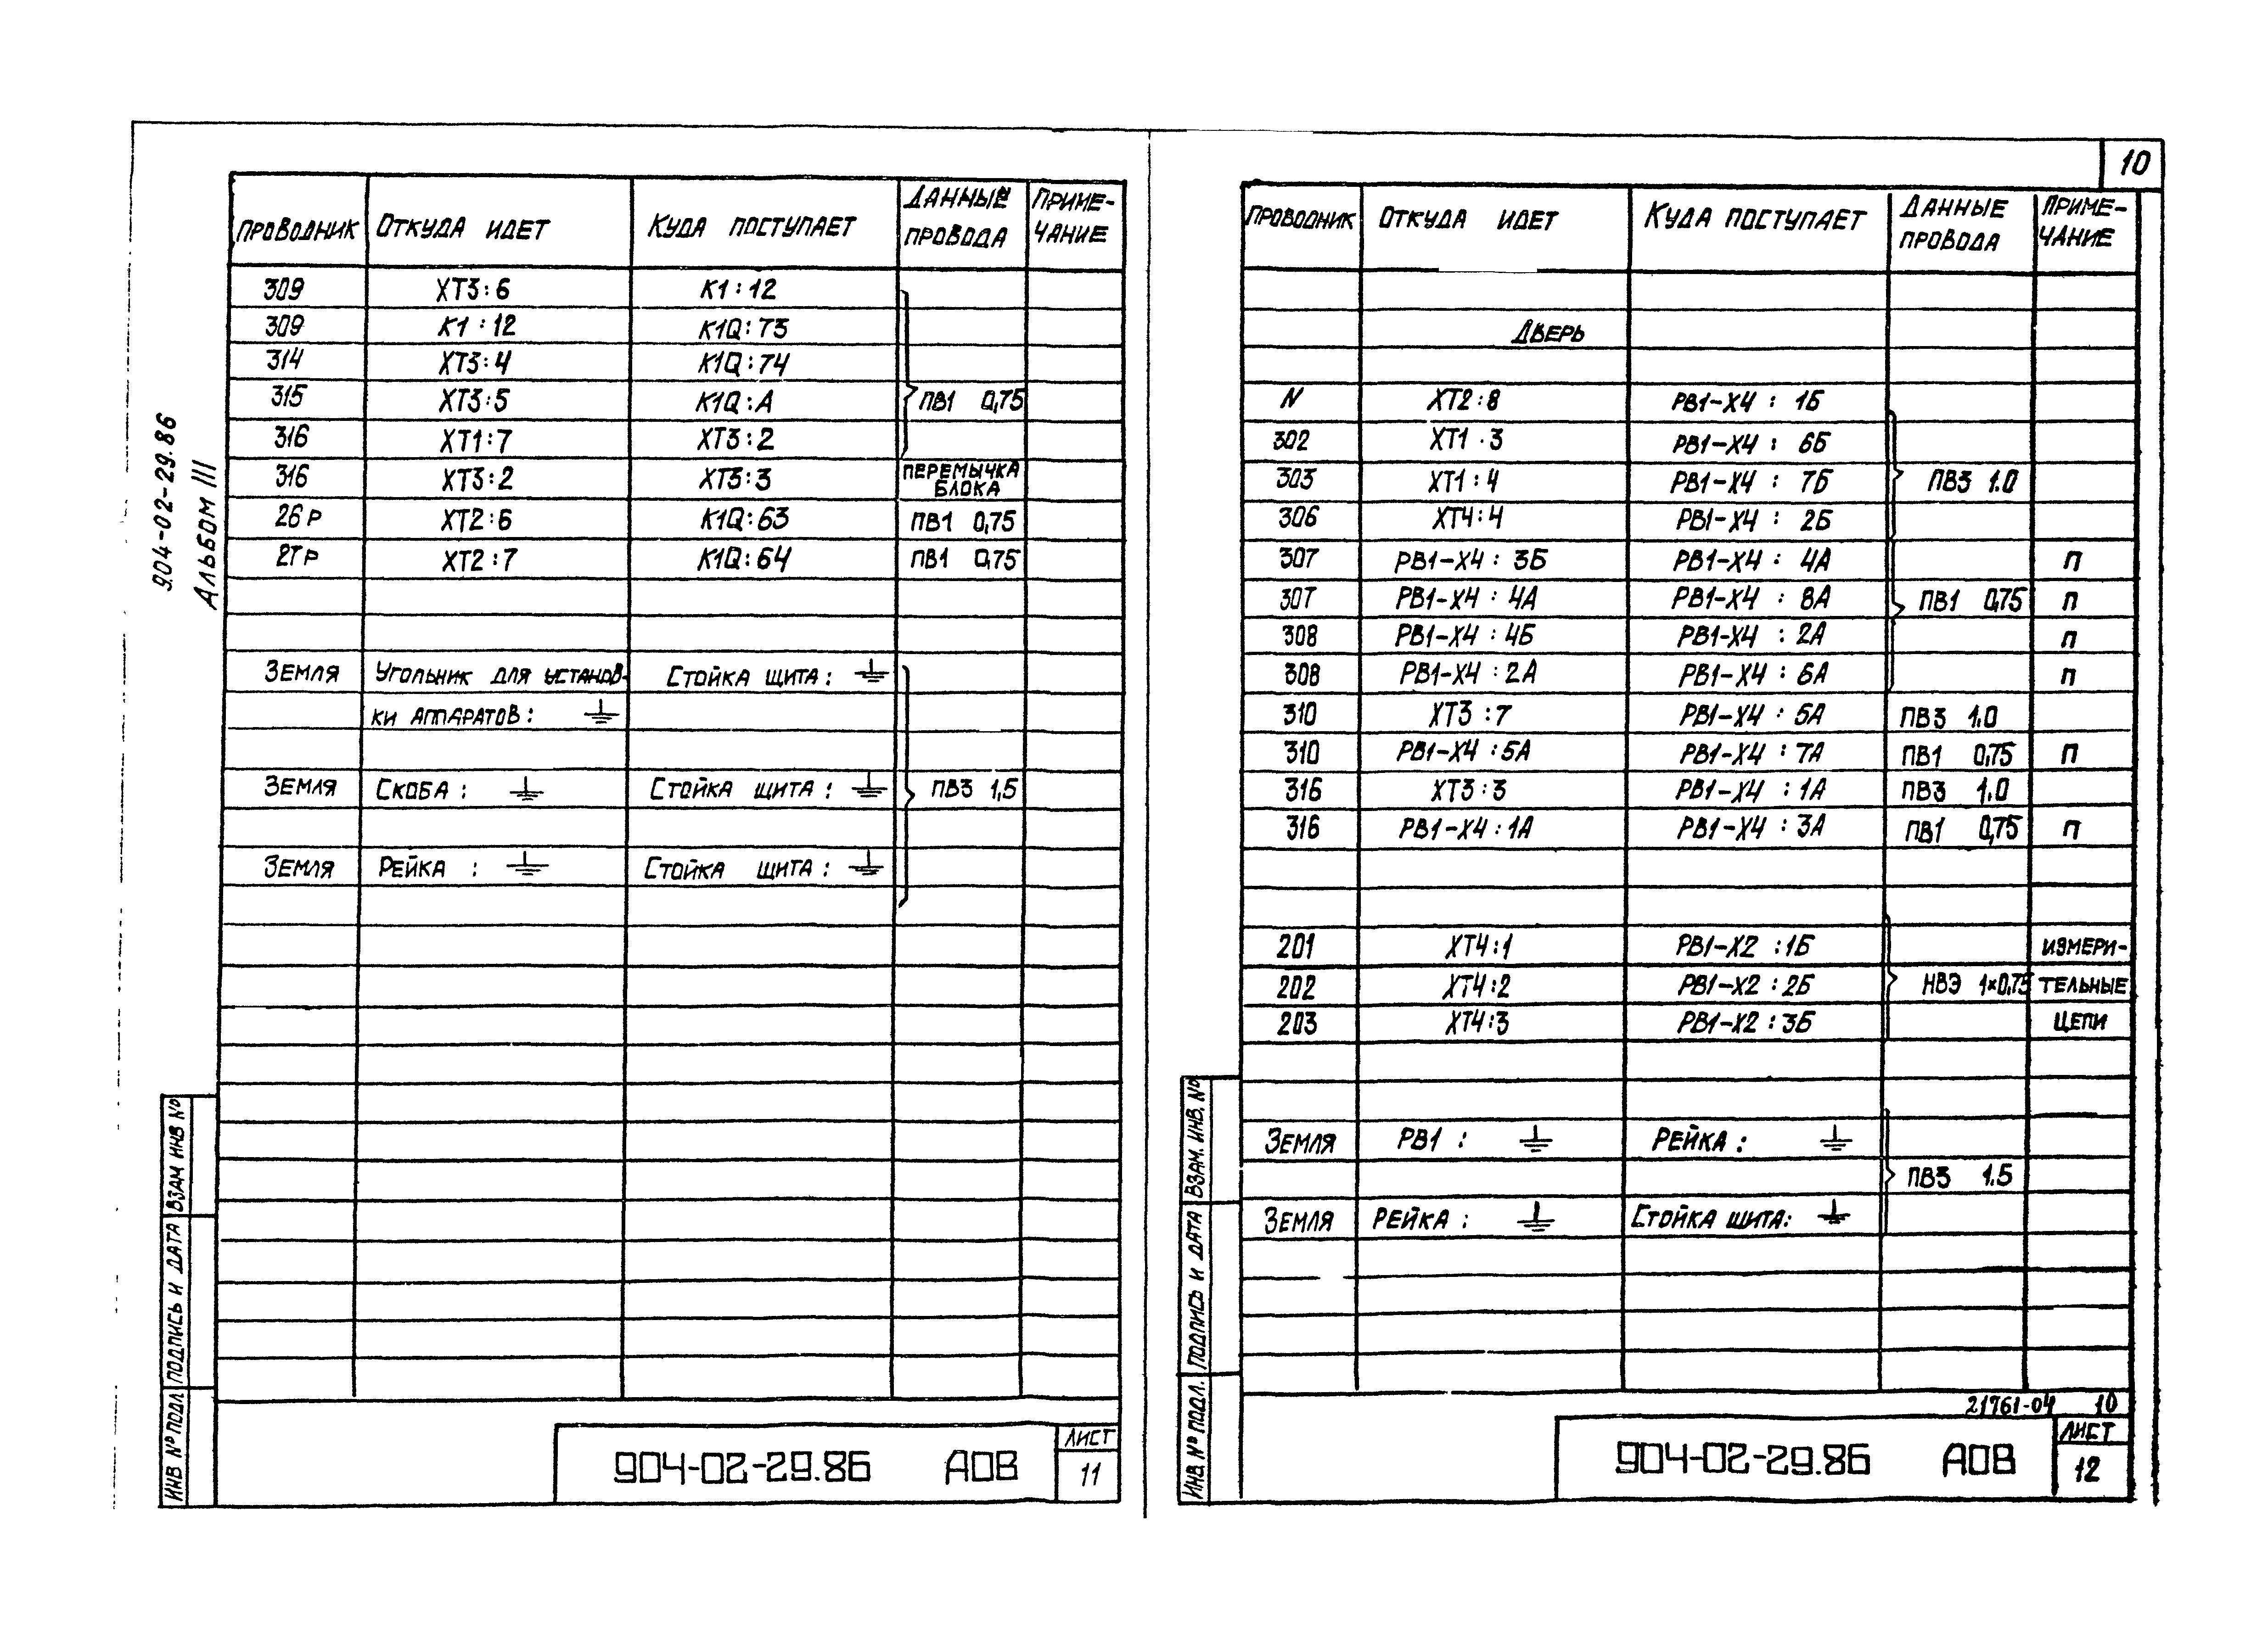 904-02-29.86
Альбом III
Проводник Откуда идет Куда поступает Данные провода Приме-чание
309 XT3:6 K1:12
309 K1:12 K1Q:73
314 XT3:4 K1Q:74
315 XT3:5 K1Q:A ПВ1 0,75
316 XT1:7 XT3:2
316 XT3:2 XT3:3 Перемычка блока
26Р XT2:6 K1Q:63 ПВ1 0,75
27Р XT2:7 K1Q:64 ПВ1 0,75
Земля Угольник для установ- Стойка щита: ⏚
ки аппаратов: ⏚
Земля Скоба: ⏚ Стойка щита: ⏚ ПВ3 1,5
Земля Рейка: ⏚ Стойка щита: ⏚
Взам инв №
Подпись и дата
Инв № подл
904-02-29.86 АОВ
Лист
11
10
Проводник Откуда идет Куда поступает Данные провода Приме-чание
Дверь
N XT2:8 РВ1-X4: 1Б
302 XT1·3 РВ1-X4: 6Б
303 XT1:4 РВ1-X4: 7Б ПВ3 1.0
306 XT4:4 РВ1-X4: 2Б
307 РВ1-X4: 3Б РВ1-X4: 4А П
307 РВ1-X4: 4А РВ1-X4: 8А ПВ1 0,75 П
308 РВ1-X4: 4Б РВ1-X4: 2А П
308 РВ1-X4: 2А РВ1-X4: 6А П
310 XT3:7 РВ1-X4: 5А ПВ3 1.0
310 РВ1-X4: 5А РВ1-X4: 7А ПВ1 0,75 П
316 XT3:3 РВ1-X4: 1А ПВ3 1.0
316 РВ1-X4: 1А РВ1-X4: 3А ПВ1 0,75 П
201 XT4:1 РВ1-X2: 1Б Измери-
202 XT4:2 РВ1-X2: 2Б НВЭ 1×0,75 тельные
203 XT4:3 РВ1-X2: 3Б цепи
Земля РВ1: ⏚ Рейка: ⏚
ПВ3 1.5
Земля Рейка: ⏚ Стойка щита: ⏚
Взам. инв. №
Подпись и дата
Инв № подл.
21761-04 10
904-02-29.86 АОВ
Лист
12